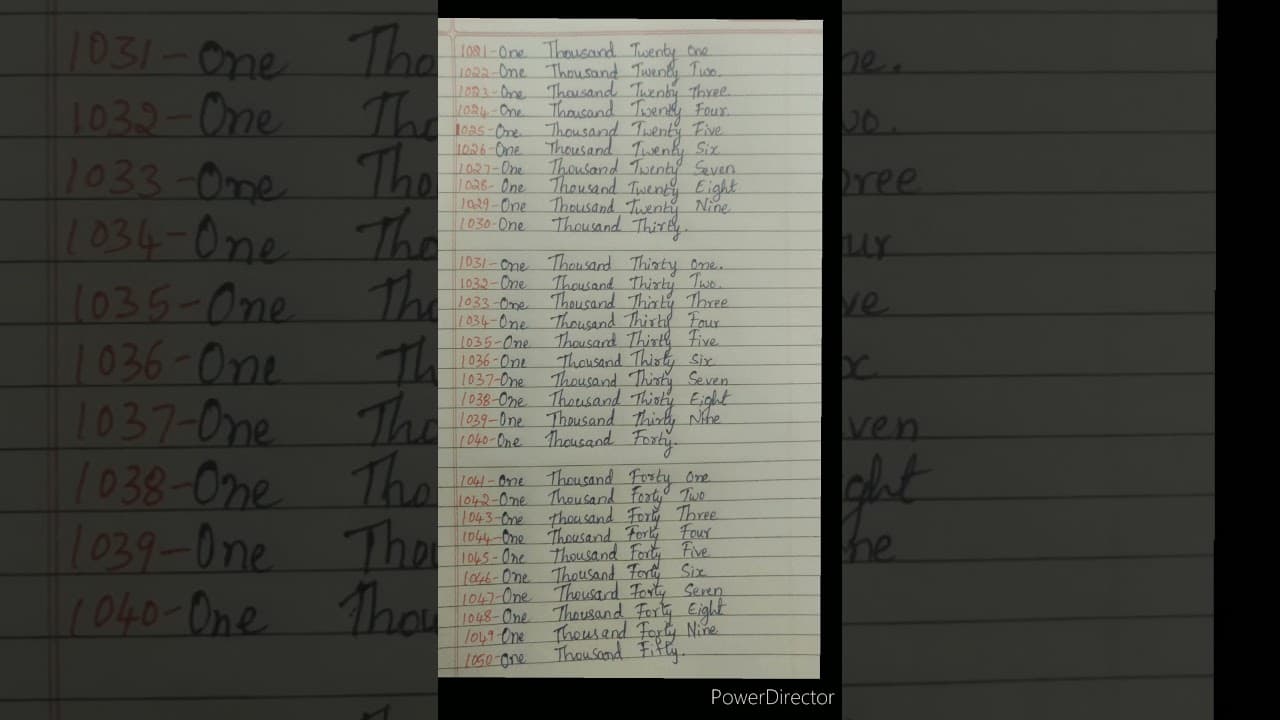 1021-One Thousand Twenty One
1022-One Thousand Twenty Two.
1023-One Thousand Twenty Three.
1024-One Thousand Twenty Four.
1025-One Thousand Twenty Five
1026-One Thousand Twenty Six
1027-One Thousand Twenty Seven
1028-One Thousand Twenty Eight
1029-One Thousand Twenty Nine
1030-One Thousand Thirty.
1031-One Thousand Thirty One.
1032-One Thousand Thirty Two.
1033-One Thousand Thirty Three
1034-One Thousand Thirty Four
1035-One Thousand Thirty Five
1036-One Thousand Thirty Six
1037-One Thousand Thirty Seven
1038-One Thousand Thirty Eight
1039-One Thousand Thirty Nine
1040-One Thousand Forty.
1041-One Thousand Forty One
1042-One Thousand Forty Two
1043-One Thousand Forty Three
1044-One Thousand Forty Four
1045-One Thousand Forty Five
1046-One Thousand Forty Six
1047-One Thousand Forty Seven
1048-One Thousand Forty Eight
1049-One Thousand Forty Nine
1050-One Thousand Fifty.
1031-One Tho ne.
1032-One Tho wo.
1033-One Tho ree
1034-One Tho ur
1035-One Tho ve
1036-One Th x
1037-One Tho ven
1038-One Tho ght
1039-One Tho ne
1040-One Thou
PowerDirector